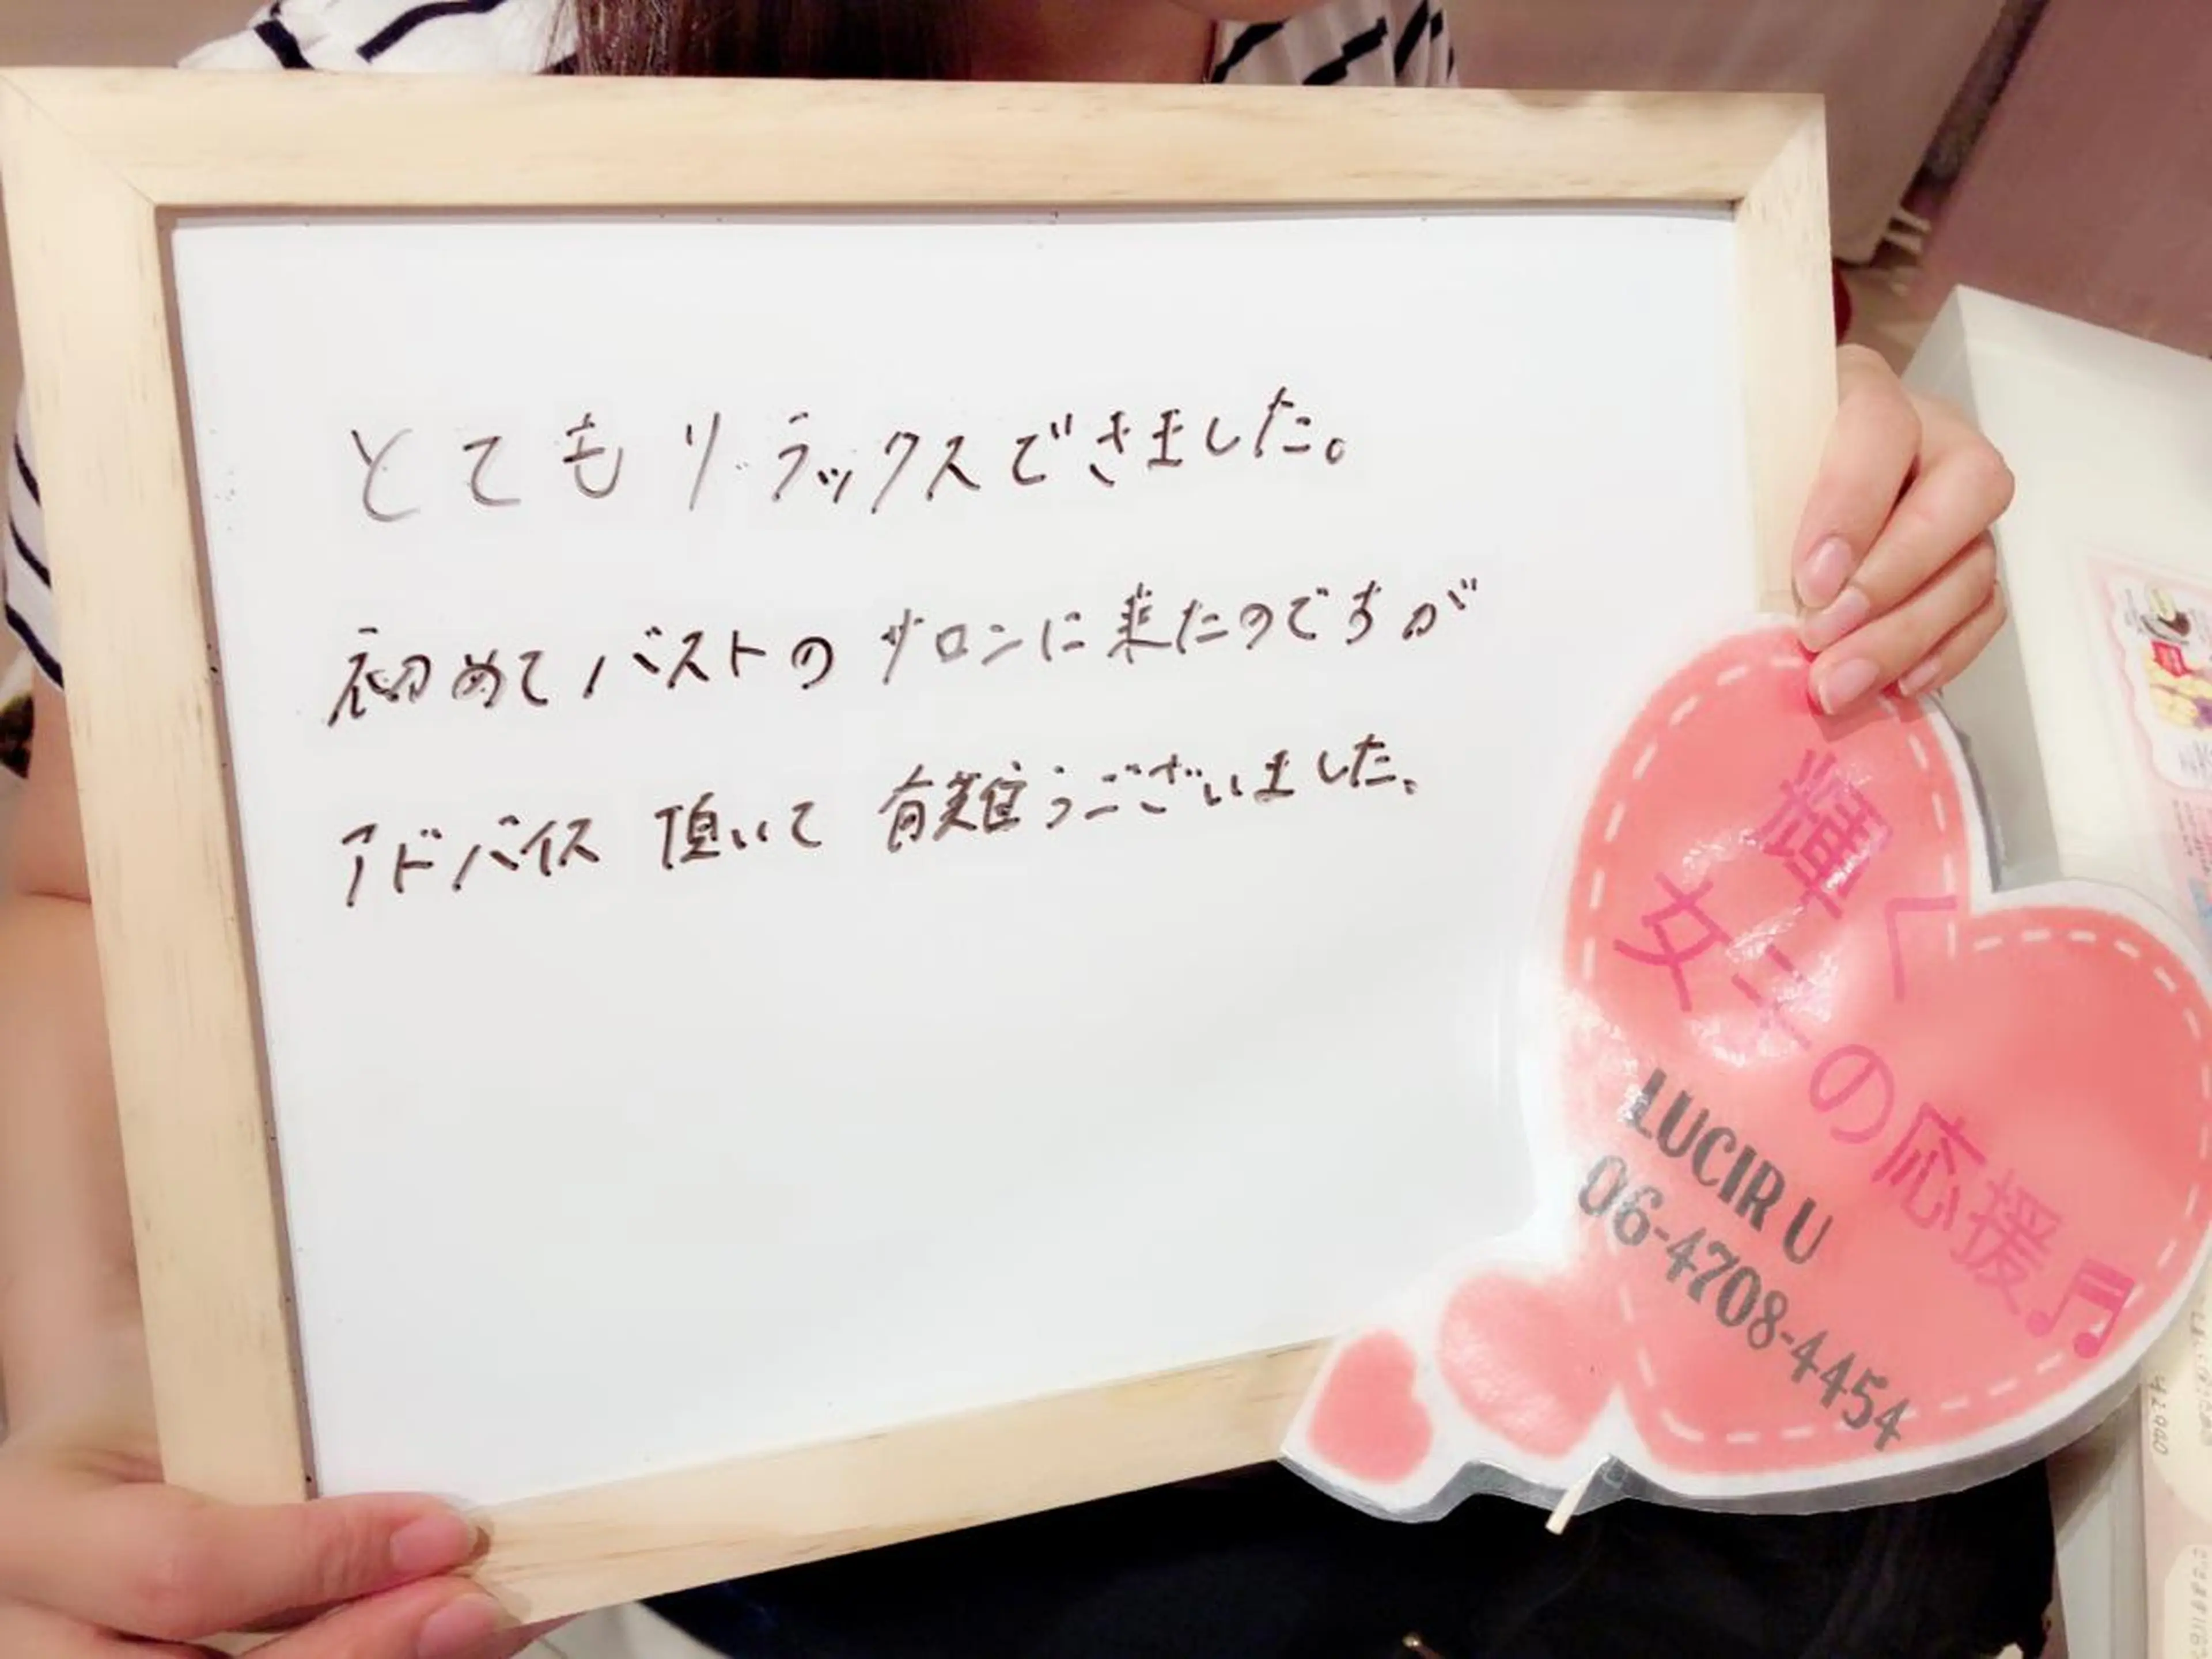 とてもリラックスできました。
初めてバストのサロンに来たのですが
アドバイス頂いて有難うございました。
輝く
女子の応援♬
LUCIR U
06-4708-4454